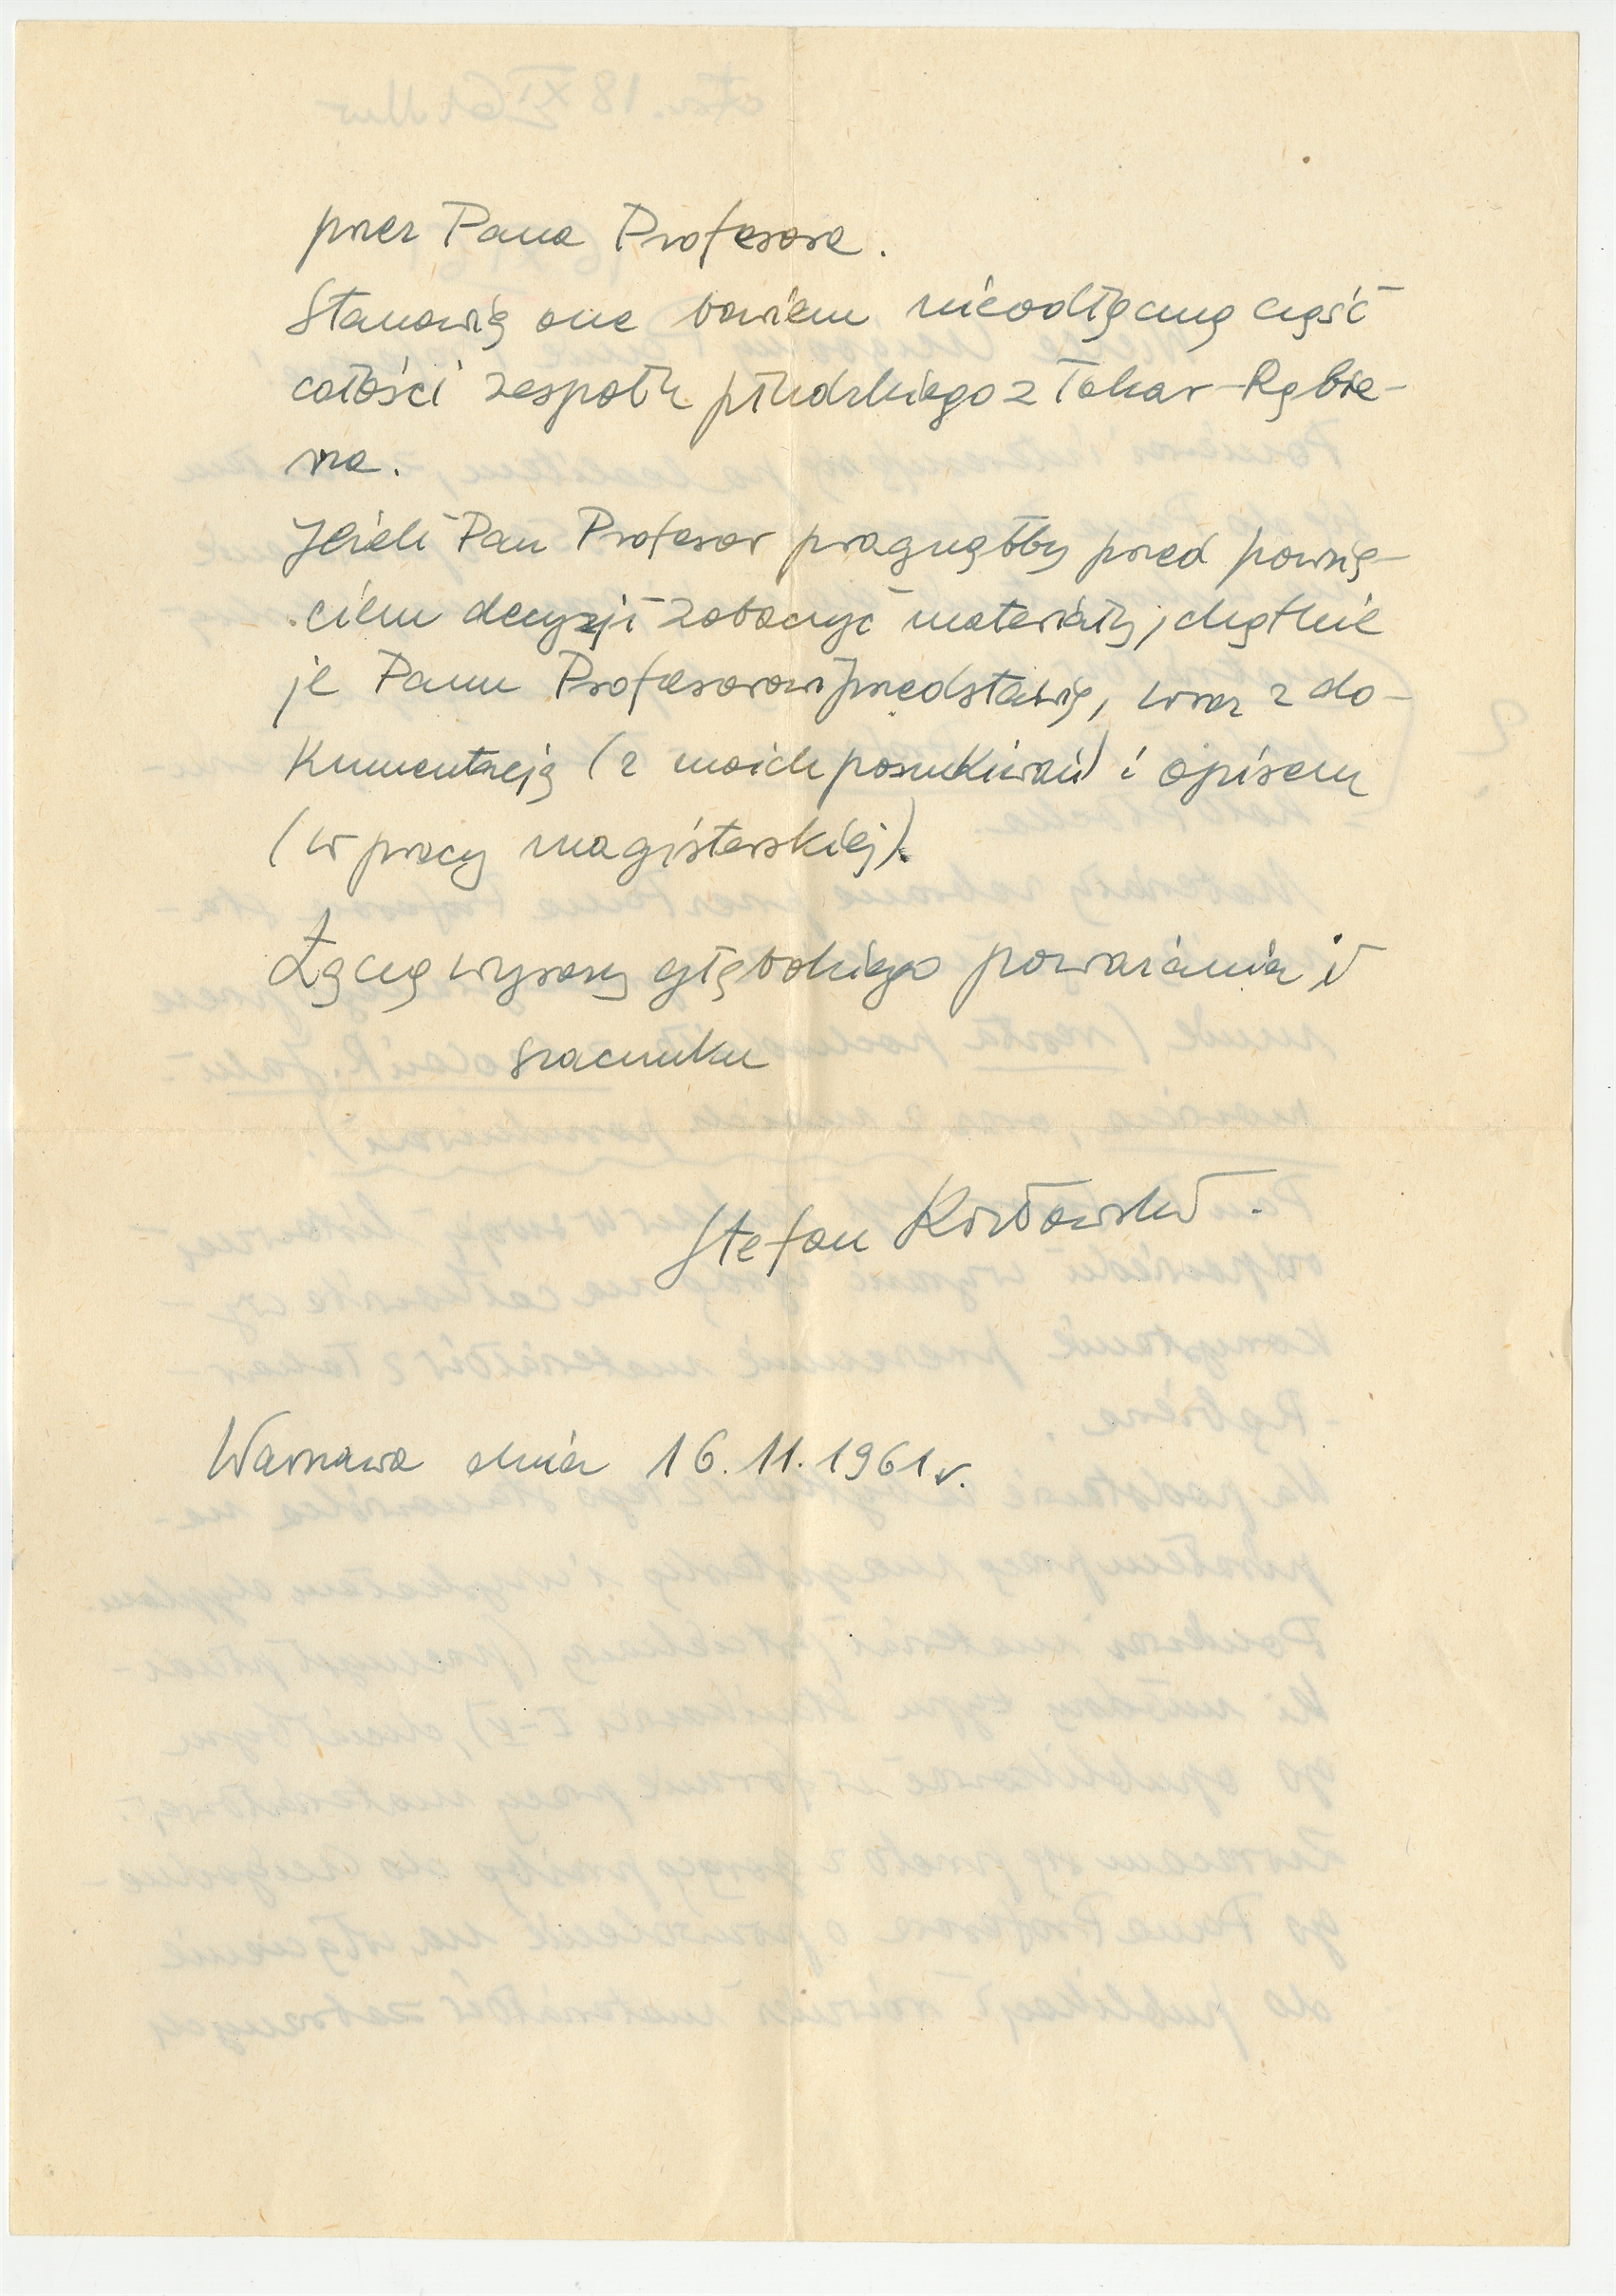 przez Pana Profesora.
Stanowią one bowiem nieodłączną część
całości zespołu płudzkiego z Tokar-Rąbie-
na.
Jeżeli Pan Profesor pragnąłby przed powzię-
ciem decyzji zobaczyć materiały, chętnie
je Panu Profesorowi przedstawię, wraz z do-
kumentacją (z moich poszukiwań) i opisem
(w pracy magisterskiej).
Łączę wyrazy głębokiego poważania i
szacunku
Stefan Kozłowski.
Warszawa dnia 16.11.1961 r.